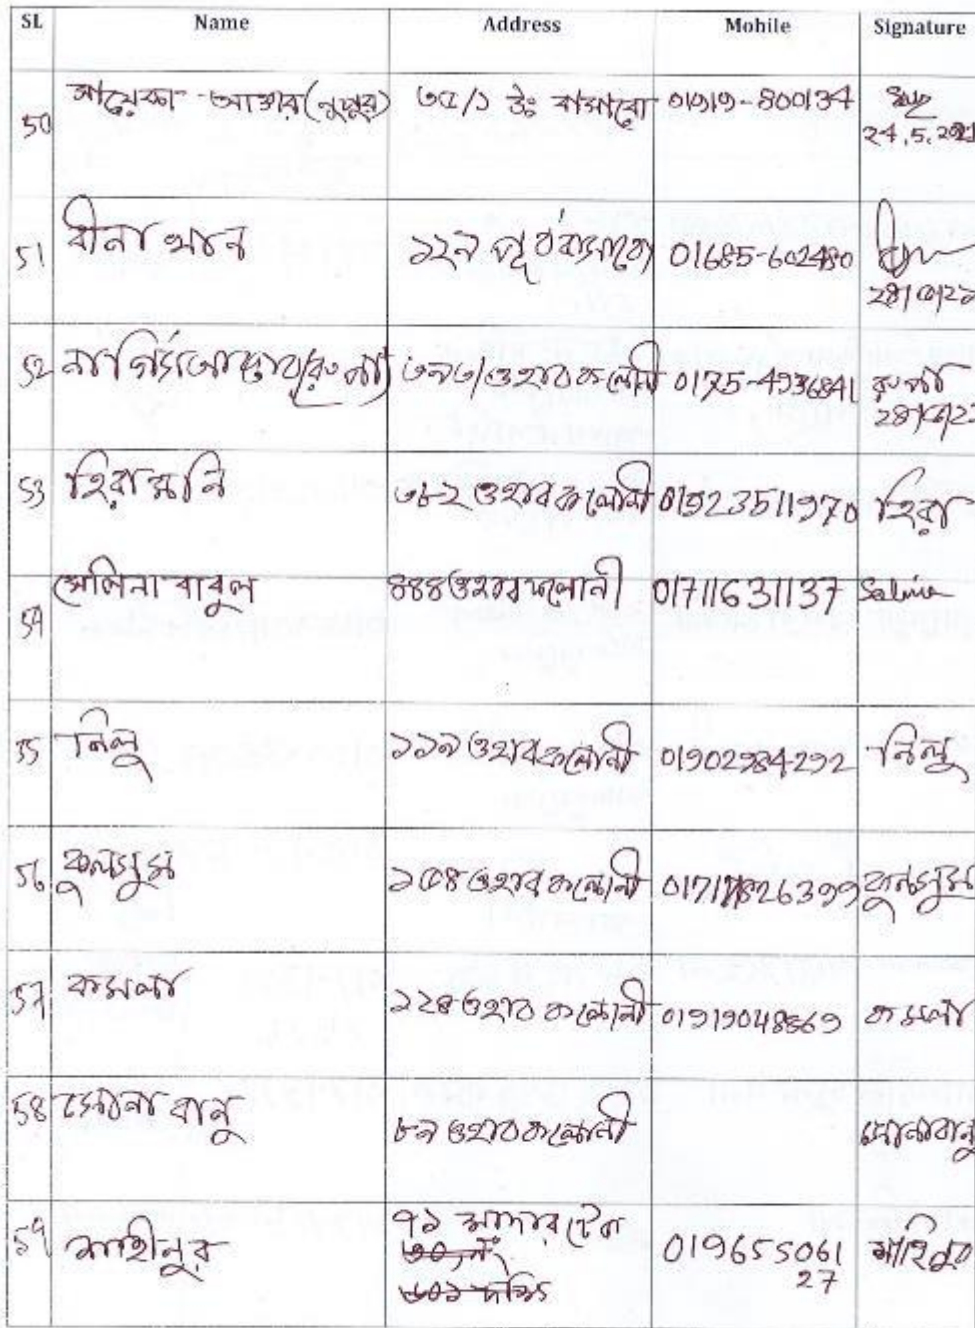 SL Name Address Mobile Signature
50 আয়েকা আক্তার (নুপুর) ৩৫/১ উঃ বাসাবো 01919-800134
24.5.2022
51 বীনা খান ১২৯ পূর্ব বাসাবো 01685-602480
২৪/৫/২২
52 নার্গিস আক্তার (রুনা) ৩৯৩/ওহাব কলোনী 0175-4936841 রুনা
২৪/৫/২২
53 হিরা মনি ৩৮২ ওহাব কলোনী 01923511970 হিরা
54 সেলিনা বাবুল ৪৪৪ ওহাব কলোনী 01711631137 Salina
55 নিলু ১১৯ ওহাব কলোনী 01902984292 নিলু
56 কুলসুম ১৫৪ ওহাব কলোনী কুলসুম
57 কমলা ১২৪ ওহাব কলোনী 01919048869 কমলা
58 সোনা বানু ৮৯ ওহাব কলোনী সোনা বানু
59 মাহীনুর ৭১ মাদারটেক 019655061 মাহিনুর
27